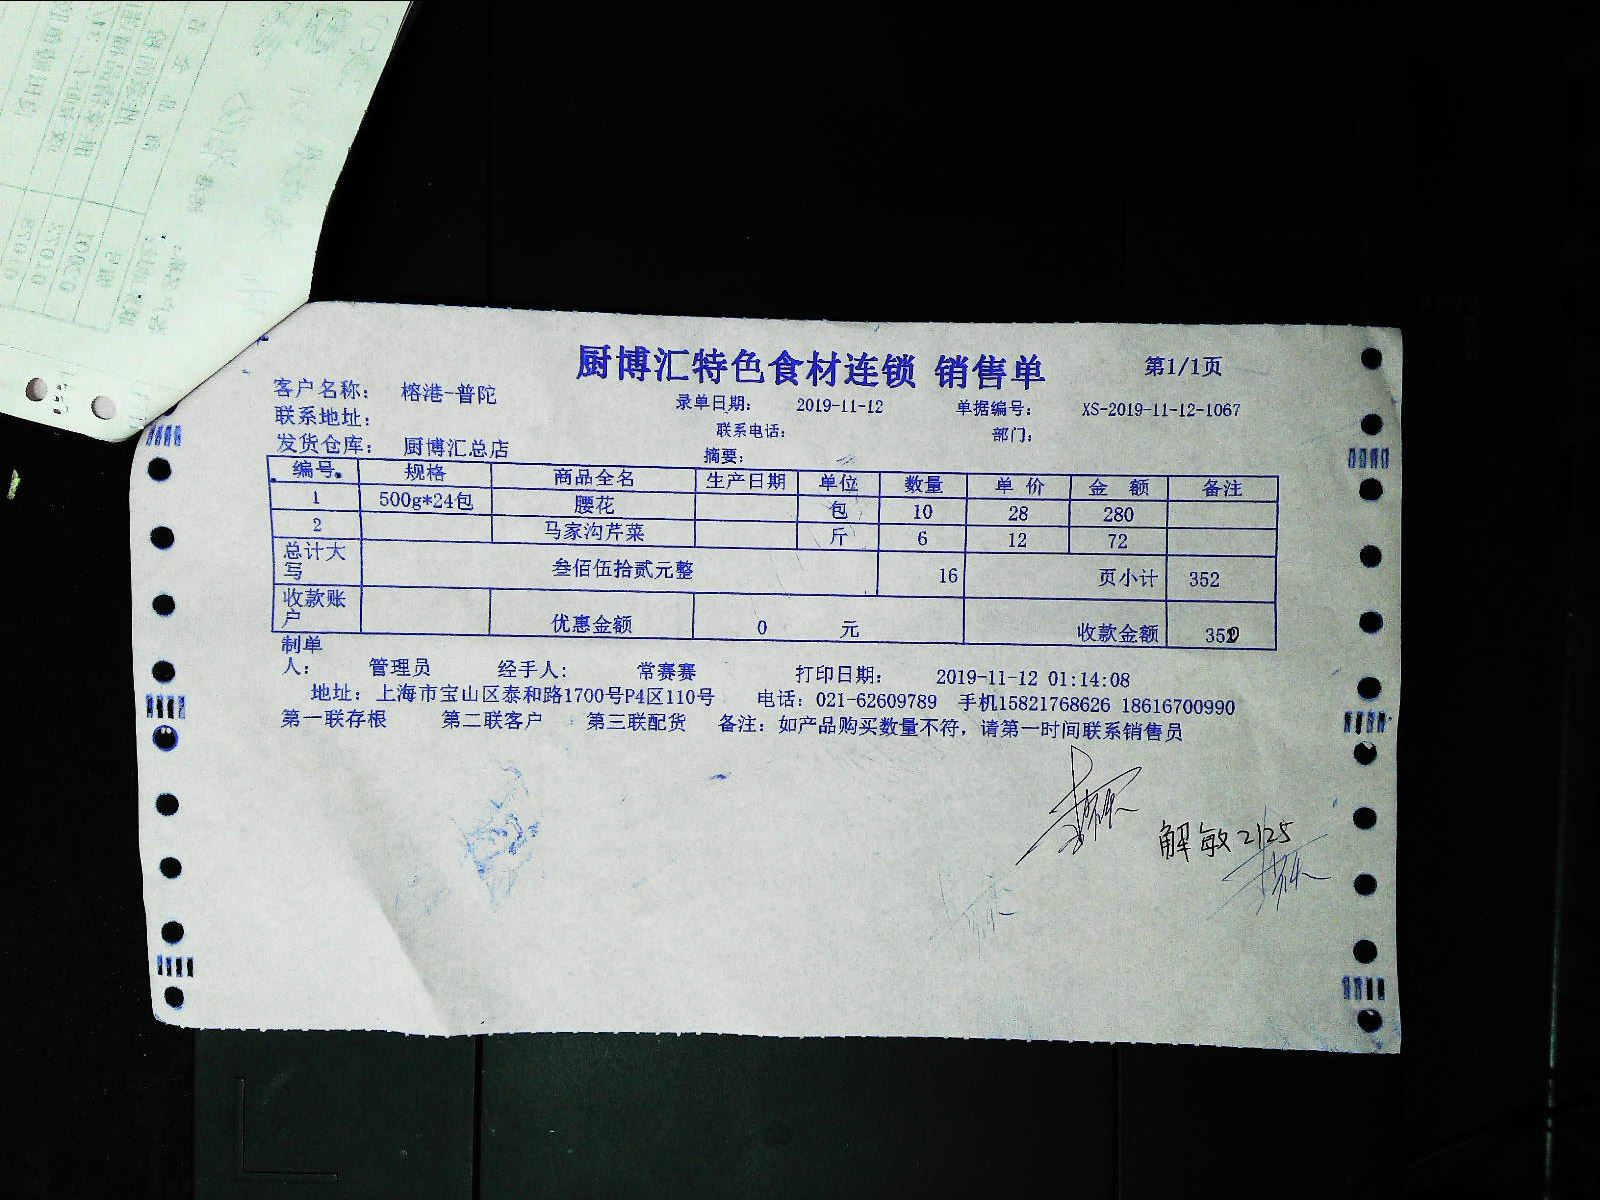 厨博汇特色食材连锁 销售单 第1/1页
客户名称： 榕港-普陀 录单日期： 2019-11-12 单据编号： XS-2019-11-12-1067
联系地址： 联系电话： 部门：
发货仓库： 厨博汇总店 摘要：
编号 规格 商品全名 生产日期 单位 数量 单 价 金 额 备注
1 500g*24包 腰花 包 10 28 280
2 马家沟芹菜 斤 6 12 72
总计大写 叁佰伍拾贰元整 16 页小计 352
收款账户 优惠金额 0 元 收款金额 350
制单人： 管理员 经手人： 常赛赛 打印日期： 2019-11-12 01:14:08
地址：上海市宝山区泰和路1700号P4区110号 电话：021-62609789 手机15821768626 18616700990
第一联存根 第二联客户 第三联配货 备注：如产品购买数量不符，请第一时间联系销售员
解敏2125